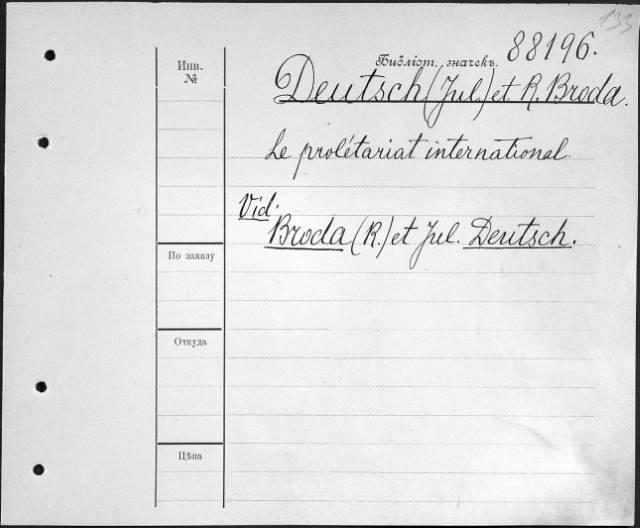 133
Инв.
№
Библіот. значекъ. 88196.
Deutsch (Jul.) et R. Broda.
Le prolétariat international.
Vid.
Broda (R.) et Jul. Deutsch.
По заказу
Откуда
Цѣна